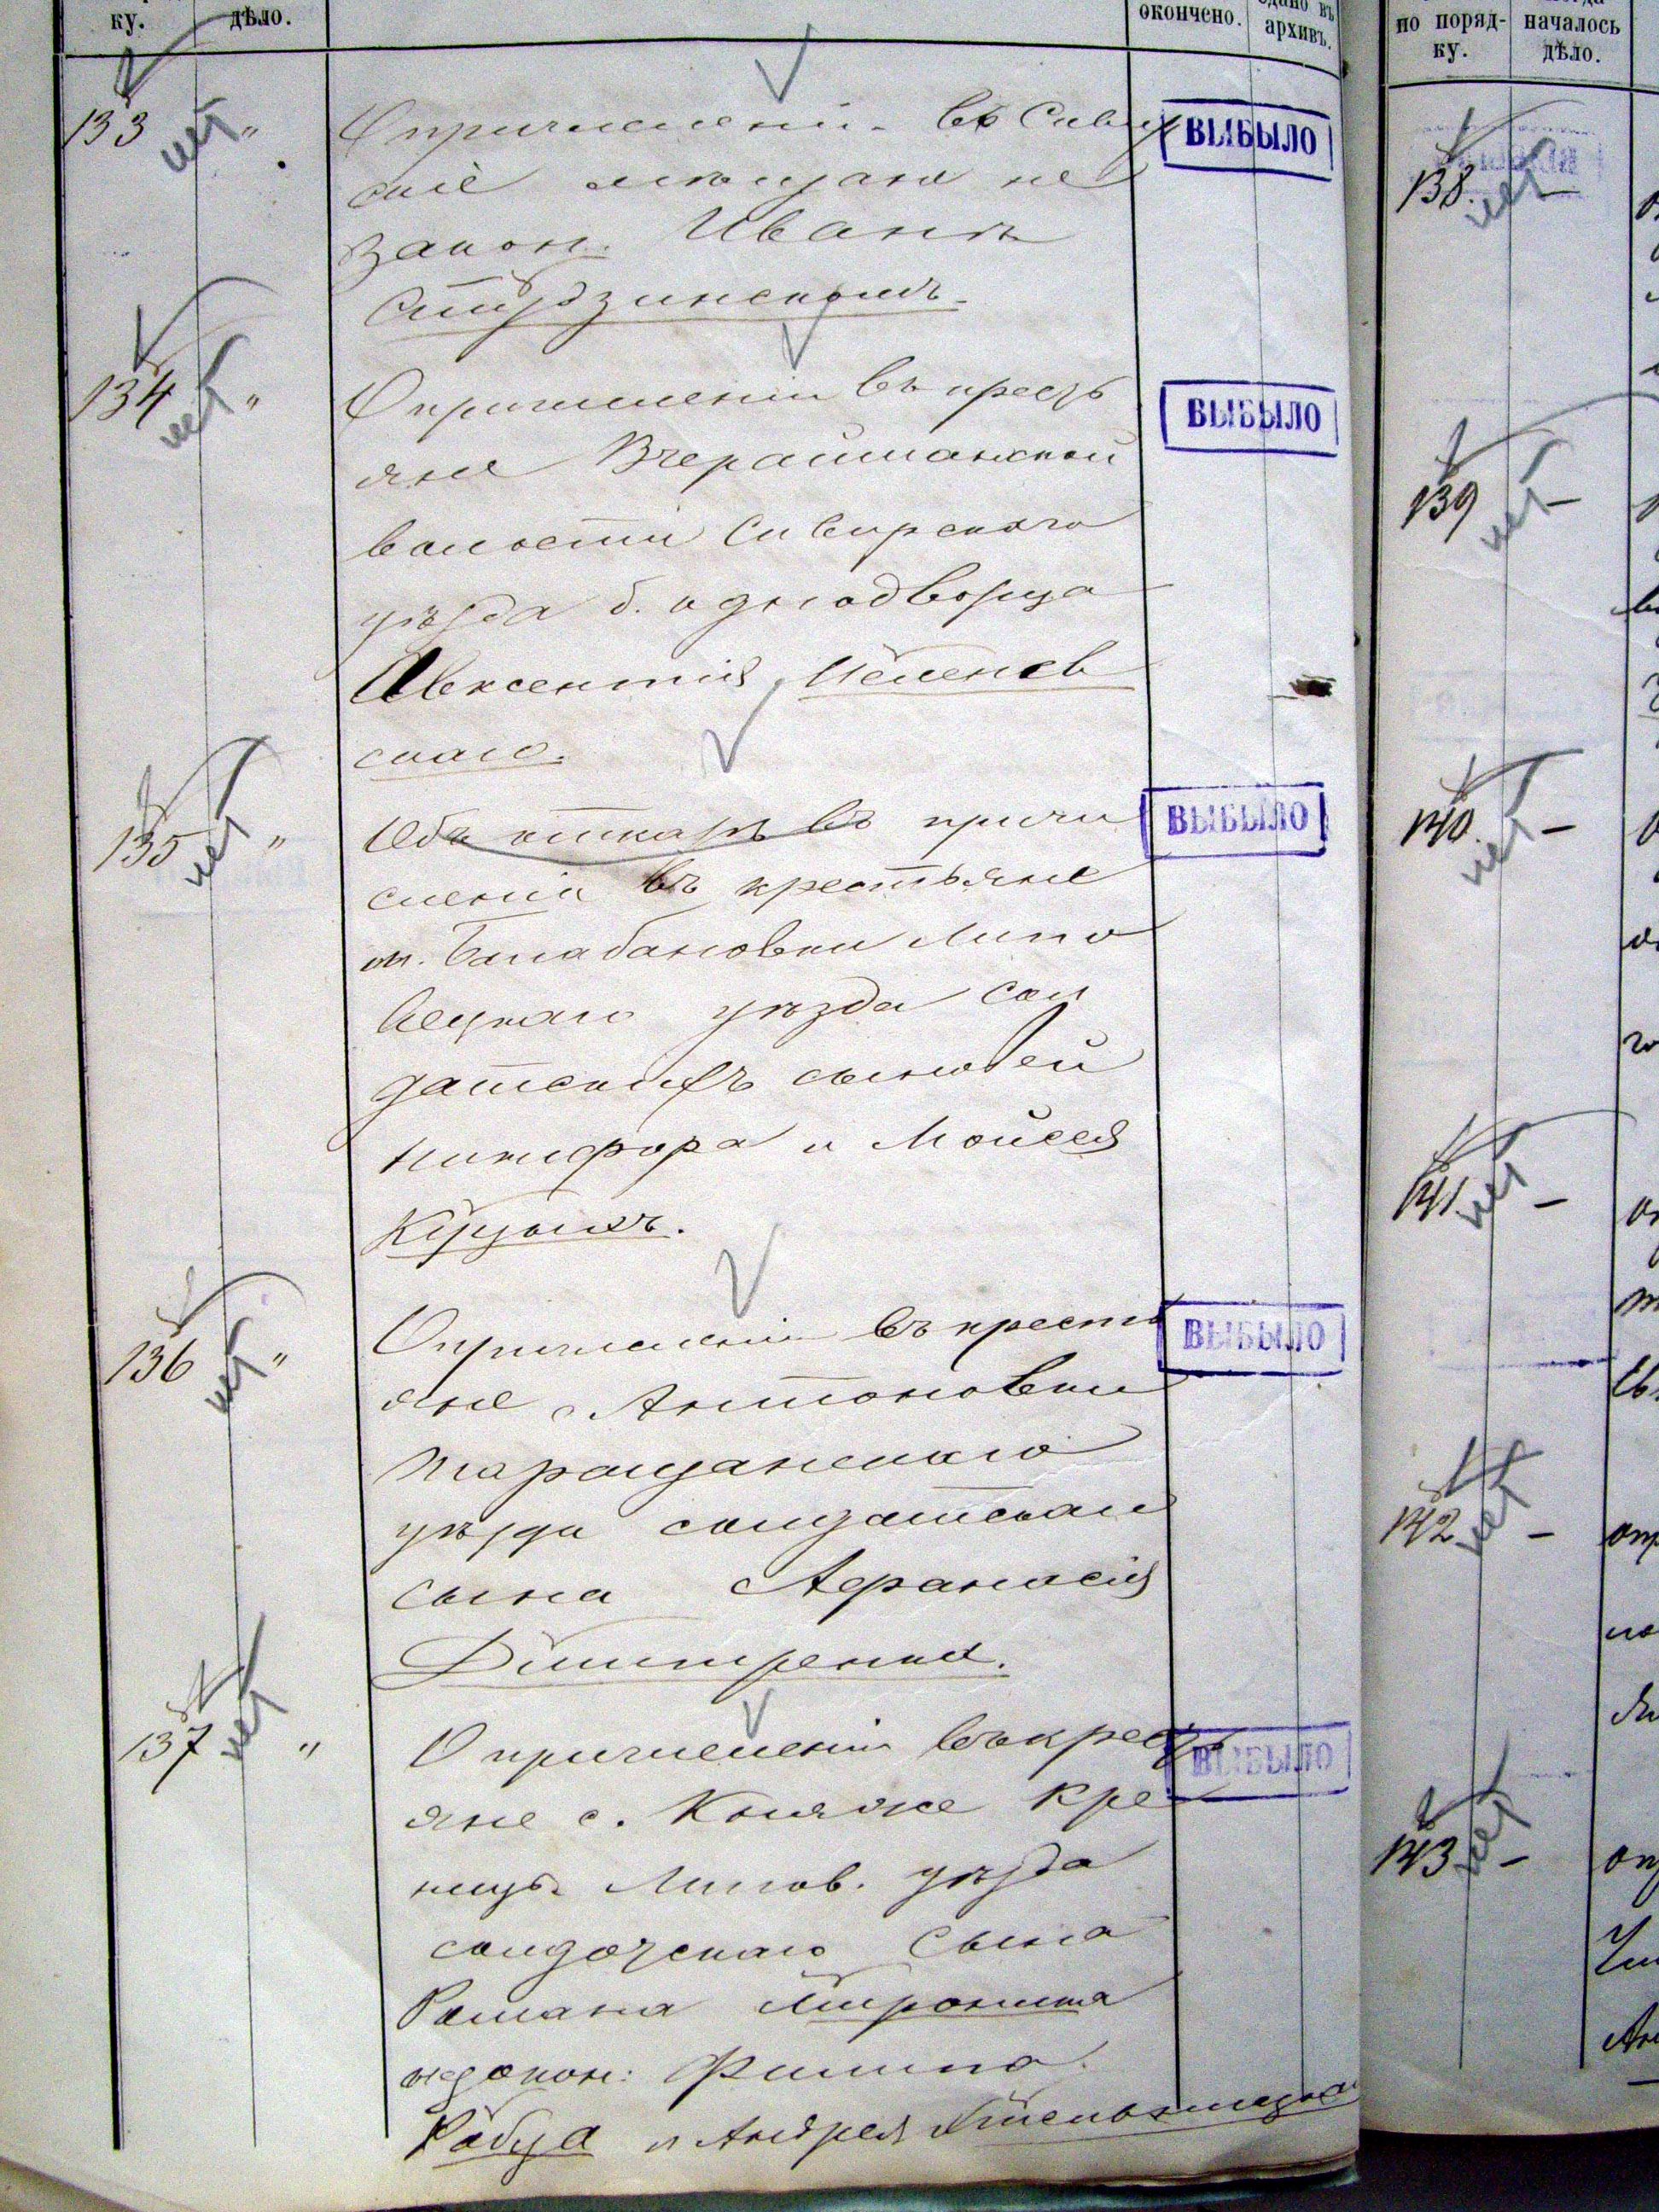 ку.
дѣло.
окончено.
архивъ.
133 нет "
О причисленіи въ Сквир
скіе мѣщане не
закон. Иванѣ
ВЫБЫЛО
134 нет "
О причисленіи въ кресть
яне Вчерайшанской
волости Сквирского
уѣзда б. однодворца
Авксентія
скаго.
ВЫБЫЛО
135 нет "
Объ отказѣ въ причи
сленіи въ крестьяне
м. Балабановки Липо
вецкаго уѣзда сол
датскихъ сыновей
Никифора и Мойсея
ВЫБЫЛО
136 нет "
О причисленіи въ кресть
яне с. Антоновки
Таращанскаго
уѣзда солдатскаго
сына Афанасія
Дмитренка.
ВЫБЫЛО
137 нет "
О причисленіи въ кресть
яне с. Княже Кре
ницъ Липов. уѣзда
солдатскаго сына
Романа
незакон: Филипа
и Андрея
ВЫБЫЛО
по поряд-
ку.
началось
дѣло.
138. нет –
139 нет –
140. нет –
141. нет –
142 нет –
143 нет –